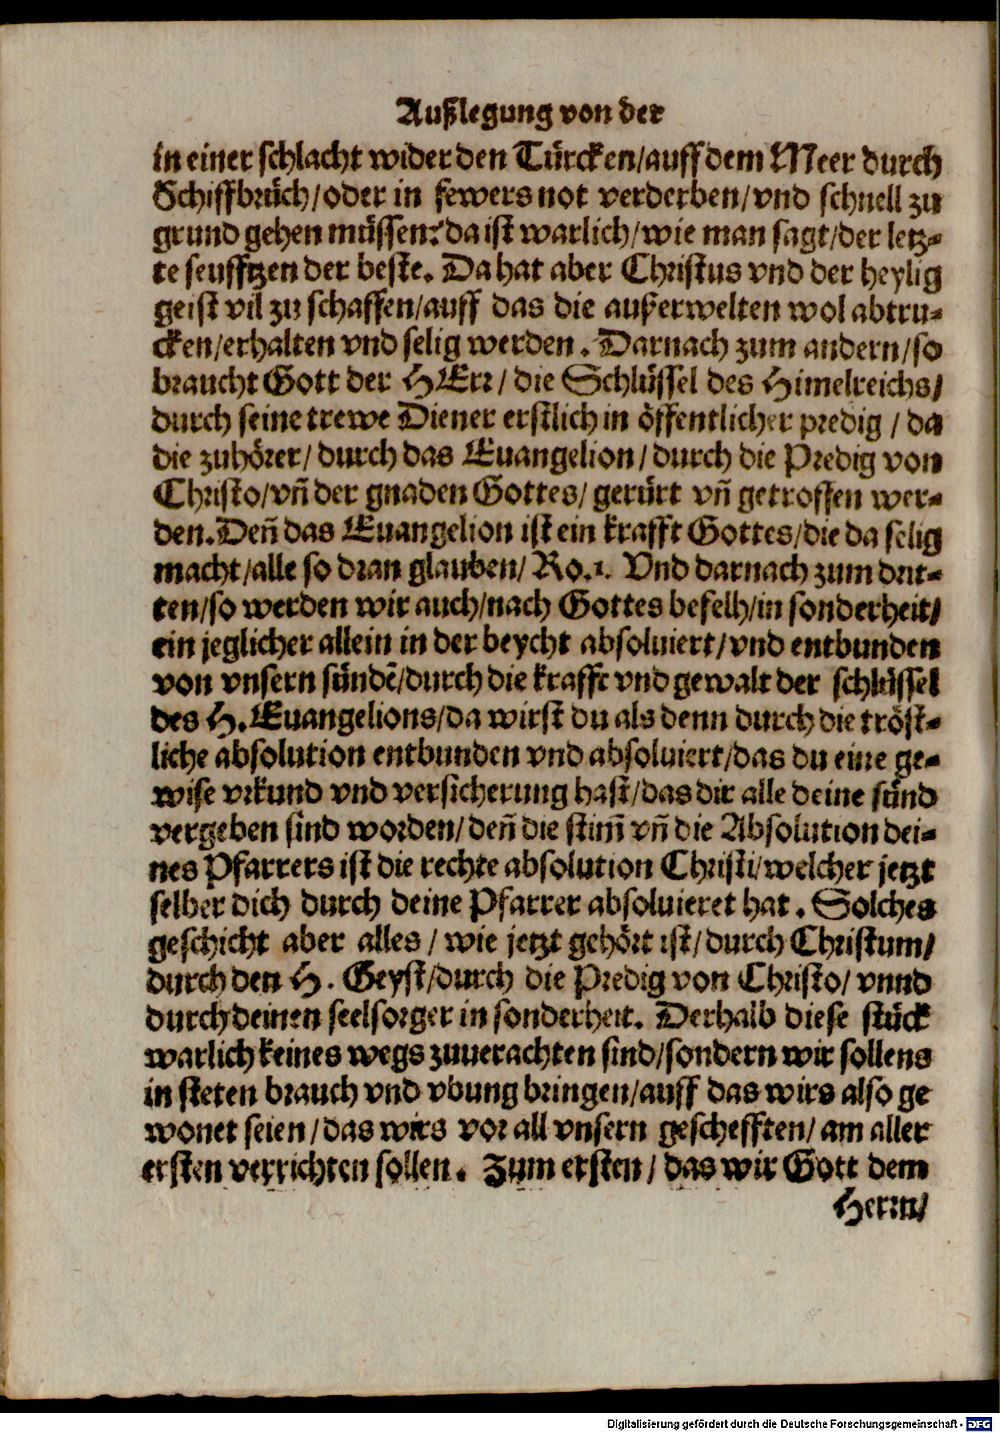 Außlegung von der
in einer schlacht wider den Türcken/auff dem Meer durch
Schiffbrüch/oder in fewers not verderben/vnd schnell zu
grund gehen müssen? da ist warlich/wie man sagt/der letz-
te seufftzen der beste. Da hat aber Christus vnd der heylig
geist vil zu schaffen/auff das die außerwelten wol abtru-
cken/erhalten vnd selig werden. Darnach zum andern/so
braucht Gott der HErr/die Schlüssel des Himelreichs/
durch seine trewe Diener erstlich in öffentlicher predig/da
die zuhörer/durch das Euangelion/durch die Predig von
Christo/vñ der gnaden Gottes/gerürt vñ getroffen wer-
den. Deñ das Euangelion ist ein krafft Gottes/die da selig
macht/alle so dran glauben/Ro.1. Vnd darnach zum drit-
ten/so werden wir auch/nach Gottes befelh/in sonderheit/
ein jeglicher allein in der beycht absoluiert/vnd entbunden
von vnsern sündẽ/durch die krafft vnd gewalt der schlüssel
des H. Euangelions/da wirst du als denn durch die tröst-
liche absolution entbunden vnd absoluiert/das du eine ge-
wise vrkund vnd versicherung hast/das dir alle deine sünd
vergeben sind worden/deñ die stim̃ vñ die Absolution dei-
nes Pfarrers ist die rechte absolution Christi/welcher jetzt
selber dich durch deine Pfarrer absoluieret hat. Solches
geschicht aber alles/wie jetzt gehört ist/durch Christum/
durch den H. Geyst/durch die Predig von Christo/vnnd
durch deinen seelsorger in sonderheit. Derhalb diese stück
warlich keines wegs zuuerachten sind/sondern wir sollens
in steten brauch vnd vbung bringen/auff das wirs also ge
wonet seien/das wirs vor all vnsern geschefften/am aller
ersten verrichten sollen. Zum ersten/das wir Gott dem
Herrn/
Digitalisierung gefördert durch die Deutsche Forschungsgemeinschaft - DFG